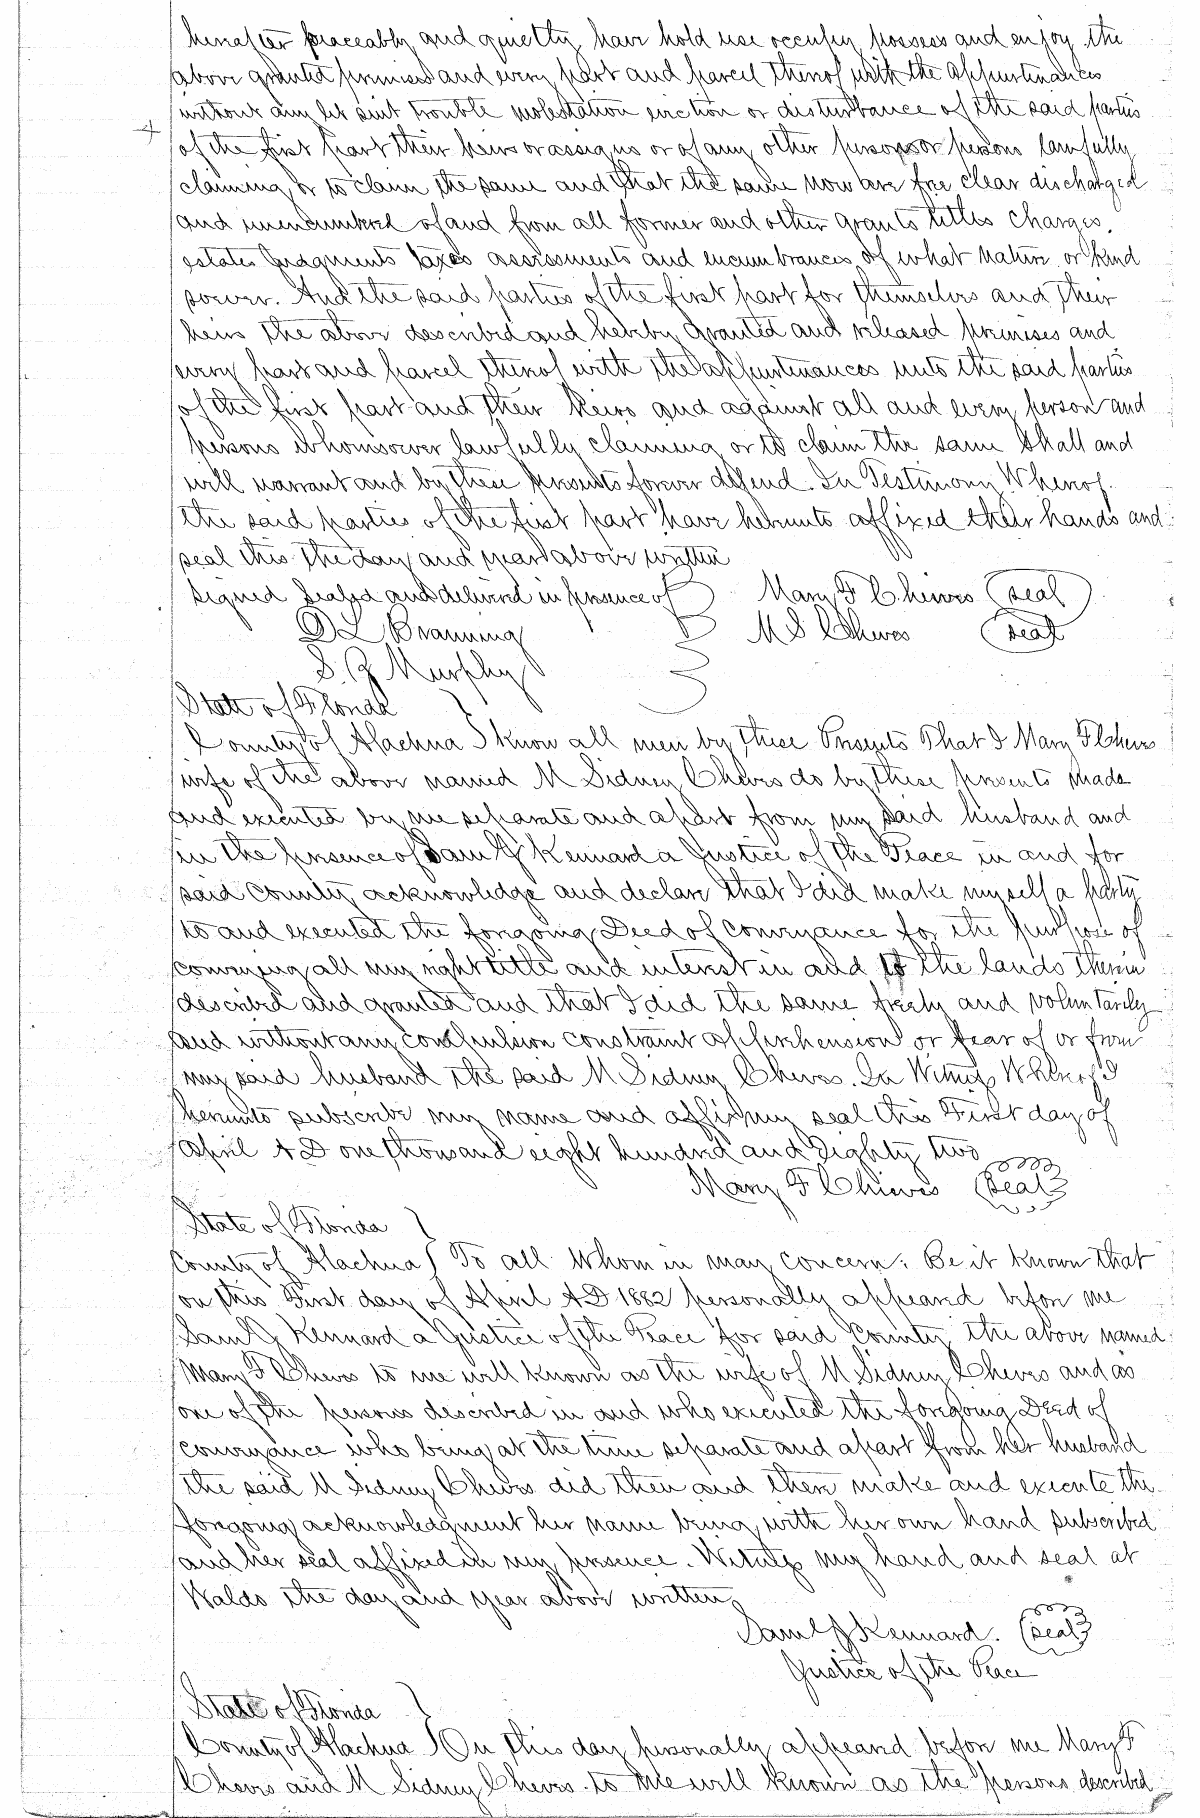 hereafter peaceably and quietly have hold use occupy possess and enjoy the
above granted premises and every part and parcel thereof with the appurtenances
without any let suit trouble molestation eviction or disturbance of the said parties
of the first part their heirs or assigns or of any other person or persons lawfully
claiming or to claim the same and that the same now are free clear discharged
and unencumbered of and from all former and other grants titles charges
estates Judgments taxes assessments and encumbrances of what nature or kind
soever. And the said parties of the first part for themselves and their
heirs the above described and hereby granted and released premises and
every part and parcel thereof with the appurtenances unto the said parties
of the first part and their heirs and against all and every person and
persons whomsoever lawfully claiming or to claim the same shall and
will warrant and by these presents forever defend. In Testimony Whereof
the said parties of the first part have hereunto affixed their hands and
seal this the day and year above written
Signed Sealed and delivered in presence of Mary F Cheves (seal)
D L Branning M S Cheves (seal)
S. J Murphy
State of Florida
County of Alachua } Know all men by these Presents That I Mary F Cheves
wife of the above named M Sidney Cheves do by these presents made
and executed by me separate and apart from my said husband and
in the presence of Saml J Kennard a Justice of the Peace in and for
said County acknowledge and declare that I did make myself a party
to and executed the forgoing Deed of Conveyance for the purpose of
conveying all my right title and interest in and to the lands therein
described and granted and that I did the same freely and voluntarily
and without any compulsion constraint apprehension or fear of or from
my said husband the said M Sidney Cheves. In Witness Whereof I
hereunto subscribe my name and affix my seal this First day of
April A D one thousand eight hundred and Eighty two
Mary F Cheves (Seal)
State of Florida }
County of Alachua } To all Whom in may concern. Be it Known that
on this First day of April A D 1882 personally appeared before me
Saml J Kennard a Justice of the Peace for said County the above named
Mary F Cheves to me well known as the wife of M Sidney Cheves and as
one of the persons described in and who executed the forgoing Deed of
conveyance who being at the time separate and apart from her husband
the said M Sidney Cheves did then and there make and execute the
forgoing acknowledgment her name being with her own hand subscribed
and her seal affixed in my presence. Witness my hand and seal at
Waldo the day and year above written
Saml J Kennard. (seal)
Justice of the Peace
State of Florida }
County of Alachua } On this day personally appeared before me Mary F
Cheves and M Sidney Cheves to me well known as the persons described